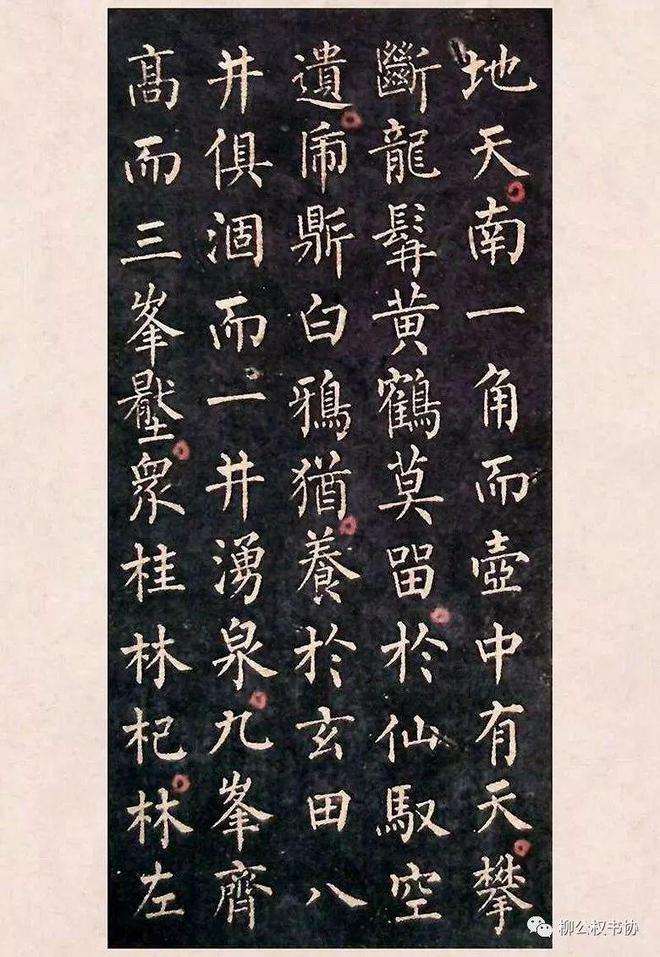 地天南一角而壺中有天攀
斷龍髯黄鶴莫留於仙馭空
遺乕鼎白鴉猶養於玄田八
井俱涸而一井湧泉九峯齊
髙而三峯壓衆桂林杞林左
柳公权书协